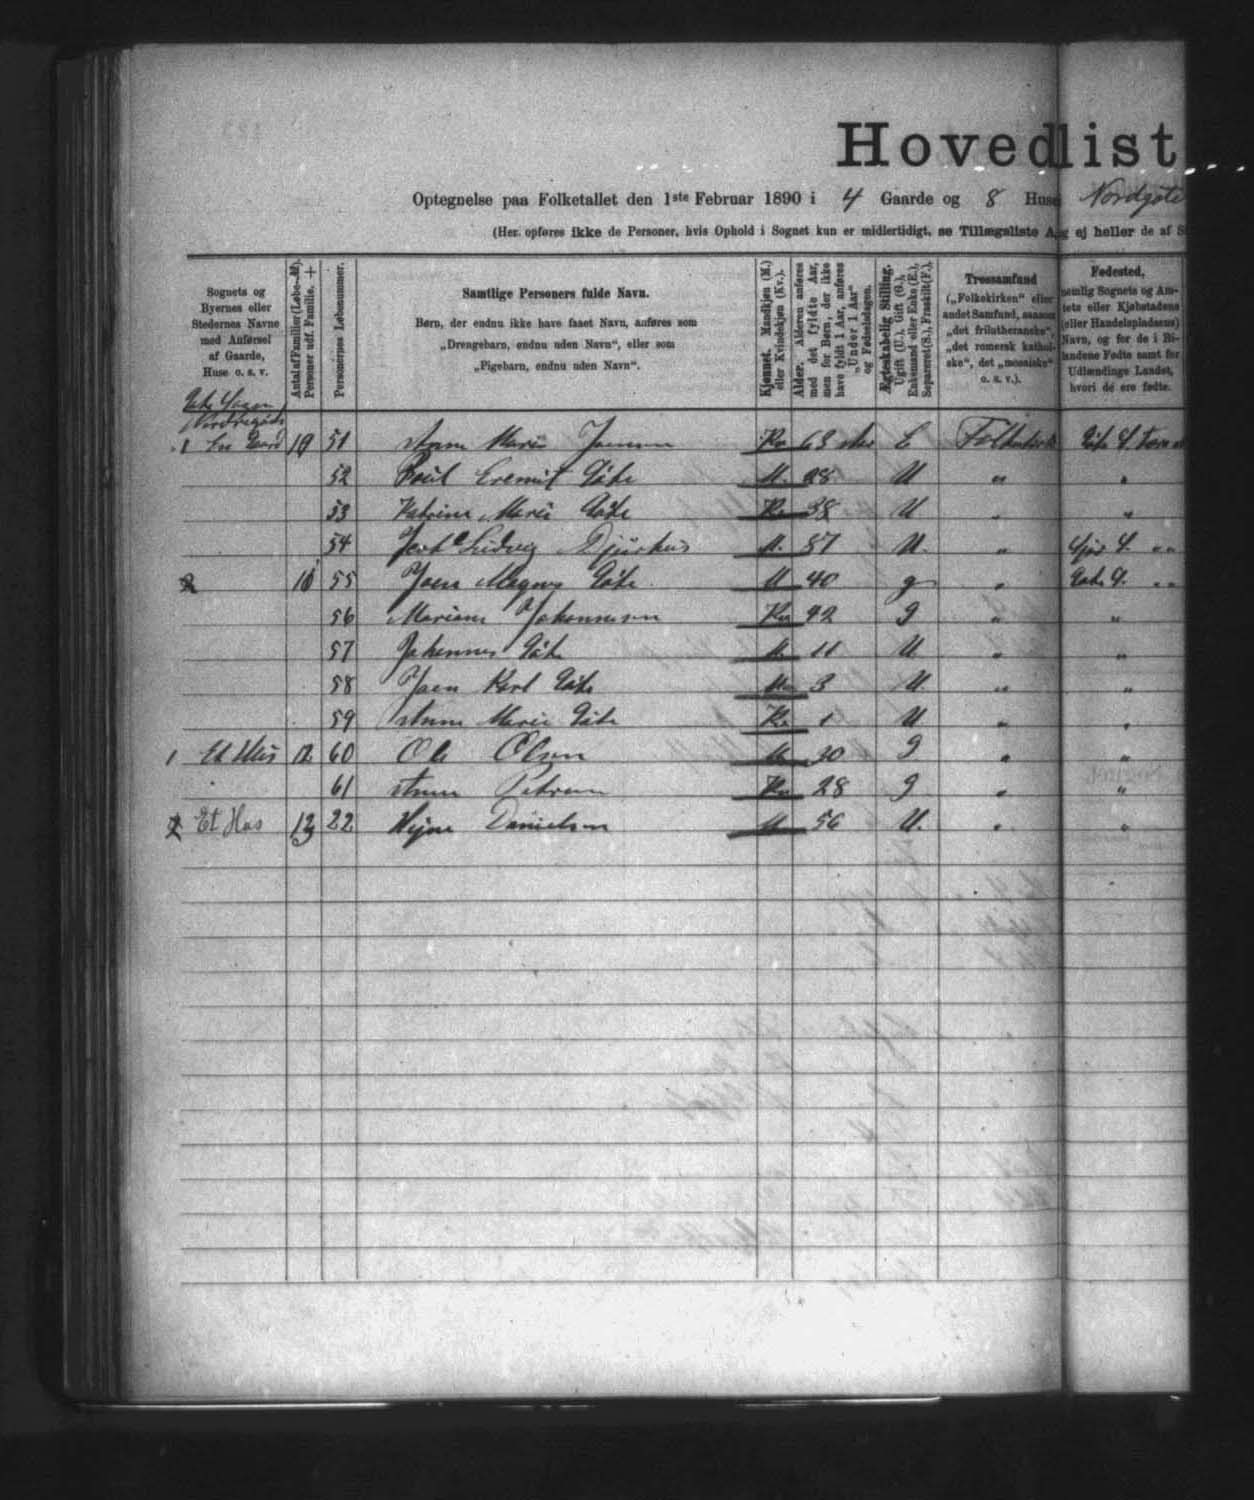 Hovedlist
Optegnelse paa Folketallet den 1ste Februar 1890 i 4 Gaarde og 8 Huse Nordgöte
(Her opføres ikke de Personer, hvis Ophold i Sognet kun er midlertidigt, se Tillægsliste A, og ej heller de af S
Sognets og
Byernes eller
Stedernes Navne
med Anførsel
af Gaarde,
Huse o. s. v.
Antal af Familier (Løbe-№).
Personer udf. Familie. +
Personernes Løbenummer.
Samtlige Personers fulde Navn.
Børn, der endnu ikke have faaet Navn, anføres som
„Drengebarn, endnu uden Navn“, eller som
„Pigebarn, endnu uden Navn“.
Kjønnet. Mandkjøn (M.)
eller Kvindekjøn (Kv.).
Alder. Alderen anføres
med det fyldte Aar,
men for Børn, der ikke
have fyldt 1 Aar, anføres
„Under 1 Aar“
og Fødselsdagen.
Ægteskabelig Stilling.
Ugift (U.), Gift (G.),
Enkemand eller Enke (E.),
Separeret (S.), Fraskilt (F.).
Trossamfund
(„Folkekirken“ eller
andet Samfund, saasom
„det frilutheranske“,
„det romersk kathol-
ske“, det „mosaiske“
o. s. v.).
Fødested,
nemlig Sognets og Am-
tets eller Kjøbstadens
(eller Handelspladsens)
Navn, og for de i Bi-
landene Fødte samt for
Udlændinge Landet,
hvori de ere fødte.
1 En Gaard 10 51 Anna Marie Joensen Kv 63 E Folkekirk Göte S.
52 Poul Eremit Göte M. 28 U „ „
53 Katrine Marie Göte Kv 38 U „ „
54 Ludvig Djurhus M. 57 U. „ S. „ „
2 11 55 Joen Magnus Göte M 40 g „ Göte S. „ „
56 Mariane Johannesen Kv 42 G „ „
57 Johannes Göte M. 11 U „ „
58 Joen Karl Göte M. 3 U „ „
59 Anna Marie Göte Kv 1 U „ „
1 Et Hus 12 60 Ole Olsen M 30 G „ „
61 Anna Kv 28 G „ „
2 Et Hus 13 22 Danielsen M 56 U. „ „